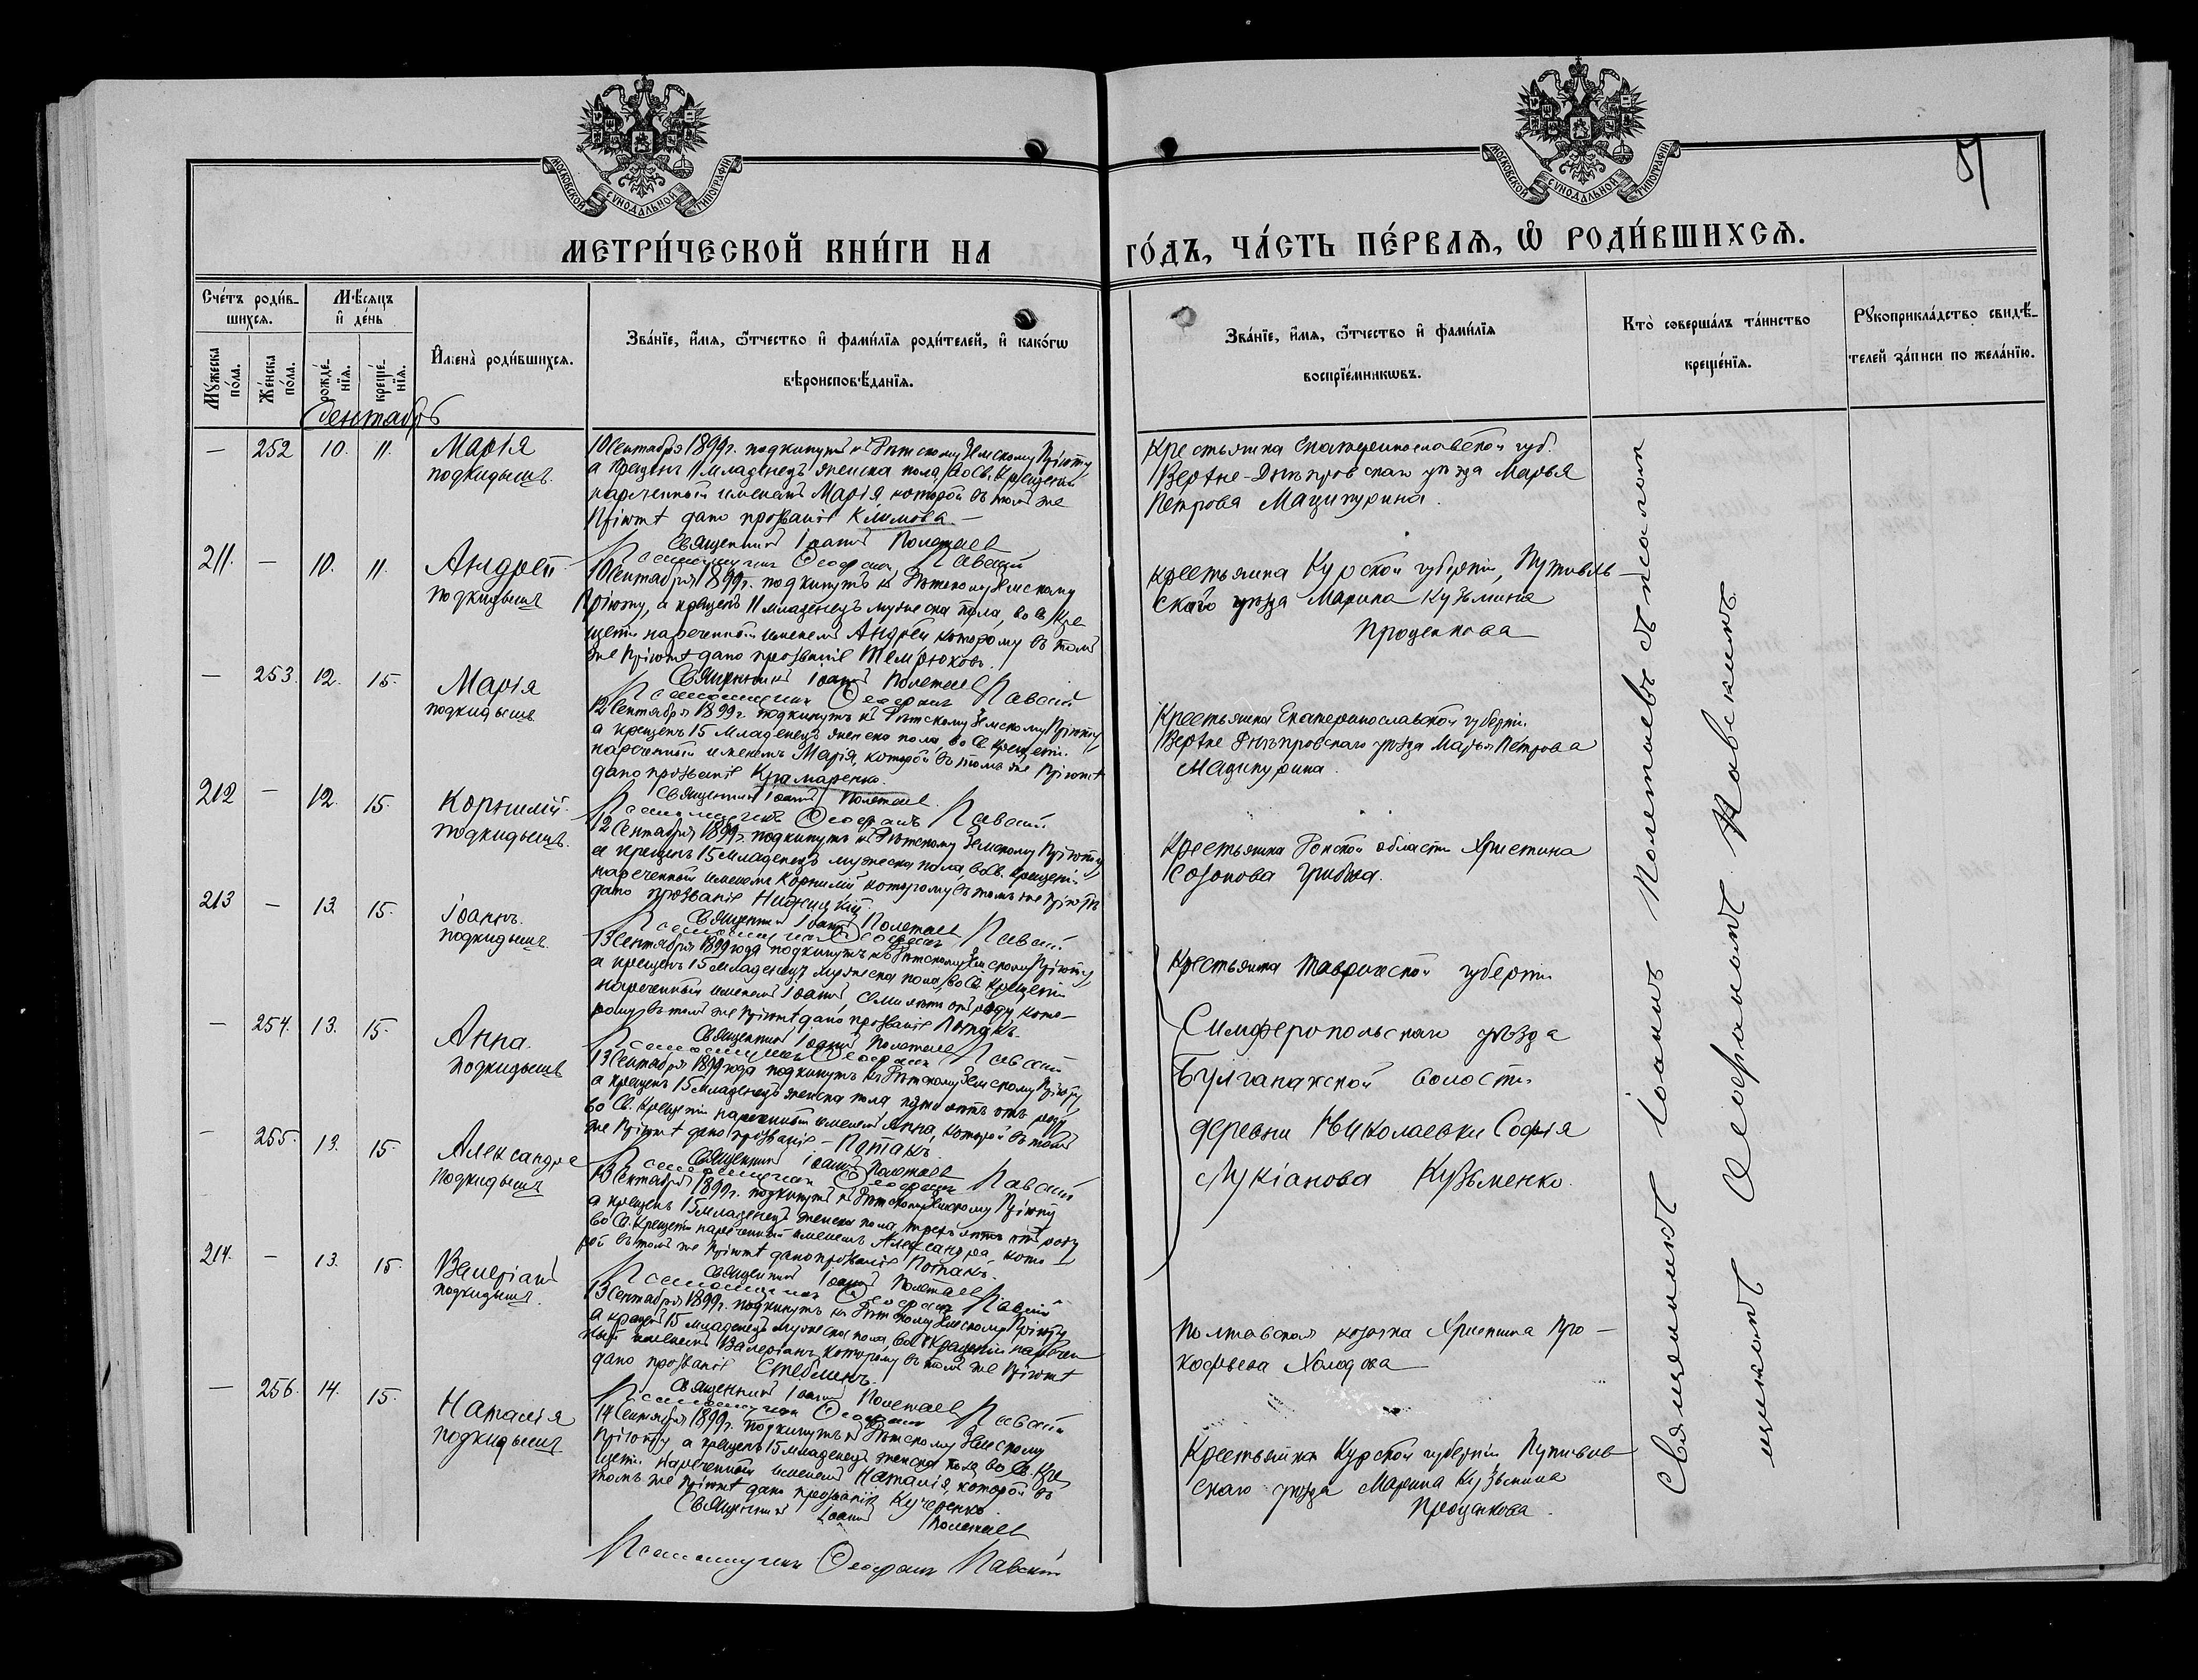 МОСКОВСКОЙ СѴНОДАЛЬНОЙ ТИПОГРАФІИ
МОСКОВСКОЙ СѴНОДАЛЬНОЙ ТИПОГРАФІИ
МЕТРИ́ЧЕСКОЙ КНИ́ГИ НА
ГО́ДЪ, ЧА́СТЬ ПЕ́РВАЯ, Ѡ РОДИ́ВШИХСЯ.
Сче́тъ роди́в-
шихся.
Мѣ́сяцъ
и де́нь
Мꙋжеска
по́ла.
Же́нска
по́ла.
рожде́-
нїя.
креще́-
нїя.
Имена̀ роди́вшихся.
Зва́нїе, и́мя, ѻ҆́тчество и҆ фами́лїя роди́телей, и҆ како́гѡ
вѣроисповѣ́данїя.
Зва́нїе, и́мя, ѻ҆́тчество и҆ фами́лїя
воспрїе́мникѡвъ.
Кто̀ соверша́лъ та́инство
креще́нїя.
Рꙋкоприкла́дство свидѣ́-
телей за́писи по жела́нїю.
Сентябрь
— 252 10. 11. Марія
подкидышъ.
10 Сентября 1899г. подкинутъ къ Дѣтскому Земскому Пріюту,
а крещенъ 11 младенецъ женска пола, во Св. Крещеніи
нареченный именемъ Марія которой въ томъ же
Пріютѣ дано прозваніе Климова —
Священникъ Іоаннъ Полетаевъ
Псаломщикъ Ѳеофанъ Павскій
Крестьянка Екатеринославской губ.
Верхне-Днѣпровскаго уѣзда Марья
Петрова Маципурина.
211. — 10. 11. Андрей
подкидышъ
10 Сентября 1899г. подкинутъ къ Дѣтскому Земскому
Пріюту, а крещенъ 11 младенецъ мужеска пола, во Св. Кре
щеніи нареченный именемъ Андрей которому въ томъ
же Пріютѣ дано прозваніе Темрюковъ.
Священникъ Іоаннъ Полетаевъ
Псаломщикъ Ѳеофанъ Павскій
Крестьянка Курской губерніи, Путивль-
скаго уѣзда Марина Кузьмина
Проценкова
— 253. 12. 15. Марія
подкидышъ
12 Сентября 1899г. подкинутъ къ Дѣтскому Земскому Пріюту,
а крещенъ 15 младенецъ женска пола, во Св. Крещеніи
нареченный именемъ Марія, которой въ томъ же Пріютѣ
дано прозваніе Крамаренко.
Священникъ Іоаннъ Полетаевъ.
Псаломщикъ Ѳеофанъ Павскій
Крестьянка Екатеринославской губерніи
Верхне Днѣпровскаго уѣзда Марья Петрова
Маципурина.
212 — 12. 15. Корнилій.
подкидышъ.
12 Сентября 1899г. подкинутъ къ Дѣтскому Земскому Пріюту,
а крещенъ 15 младенецъ мужеска пола, во Св. Крещеніи
нареченный именемъ Корнилій которому въ томъ же Пріютѣ
дано прозваніе
Священникъ Іоаннъ Полетаевъ
Псаломщикъ Ѳеофанъ Павскій
Крестьянка Донской области Христина
Созонова
213 — 13. 15. Іоаннъ.
подкидышъ.
13 Сентября 1899 года подкинутъ къ Дѣтскому Земскому Пріюту,
а крещенъ 15 младенецъ мужеска пола, во Св. Крещеніи
нареченный именемъ Іоаннъ, семи лѣтъ отъ роду, кото-
рому въ томъ же Пріютѣ дано прозваніе Потакъ.
Священникъ Іоаннъ Полетаевъ
Псаломщикъ Ѳеофанъ Павскій
Крестьянка Таврической губерніи
Симферопольскаго уѣзда
Булганакской волости
деревни Николаевки Софія
Лукіанова Кузьменко.
— 254. 13. 15. Анна.
подкидышъ
13 Сентября 1899 года подкинутъ къ Дѣтскому Земскому Пріюту,
а крещенъ 15 младенецъ женска пола пяти лѣтъ отъ роду,
во Св. Крещеніи нареченный именемъ Анна, которой въ томъ
же Пріютѣ дано прозваніе — Потакъ.
Священникъ Іоаннъ Полетаевъ
Псаломщикъ Ѳеофанъ Павскій
— 255. 13. 15. Александра
подкидышъ
13 Сентября 1899г. подкинутъ къ Дѣтскому Земскому Пріюту
а крещенъ 15 младенецъ женска пола, трехъ лѣтъ отъ роду
во Св. Крещеніи нареченный именемъ Александра, кото
рой въ томъ же Пріютѣ дано прозваніе Потакъ.
Священникъ Іоаннъ Полетаевъ
Псаломщикъ Ѳеофанъ Павскій
214. — 13. 15. Валеріанъ
подкидышъ.
13 Сентября 1899г. подкинутъ къ Дѣтскому Земскому Пріюту
а крещенъ 15 младенецъ мужеска пола, во Св. Крещеніи наречен
ный именемъ Валеріанъ, которому въ томъ же Пріютѣ
дано прозваніе Стеблинъ.
Священникъ Іоаннъ Полетаевъ
Псаломщикъ Ѳеофанъ Павскій
Полтавская козачка Христина Про-
кофьева Холодова
— 256. 14. 15. Наталія
подкидышъ
14 Сентября 1899г. подкинутъ къ Дѣтскому Земскому
Пріюту, а крещенъ 15 младенецъ женска пола, во Св. Кре
щеніи нареченный именемъ Наталія, которой въ
томъ же Пріютѣ дано прозваніе Кучеренко.
Священникъ Іоаннъ Полетаевъ
Псаломщикъ Ѳеофанъ Павскій
Крестьянка Курской губерніи Путивль
скаго уѣзда Марина Кузьмина
Проценкова.
Священникъ Іоаннъ Полетаевъ съ псалом
щикомъ Ѳеофаномъ Павскимъ